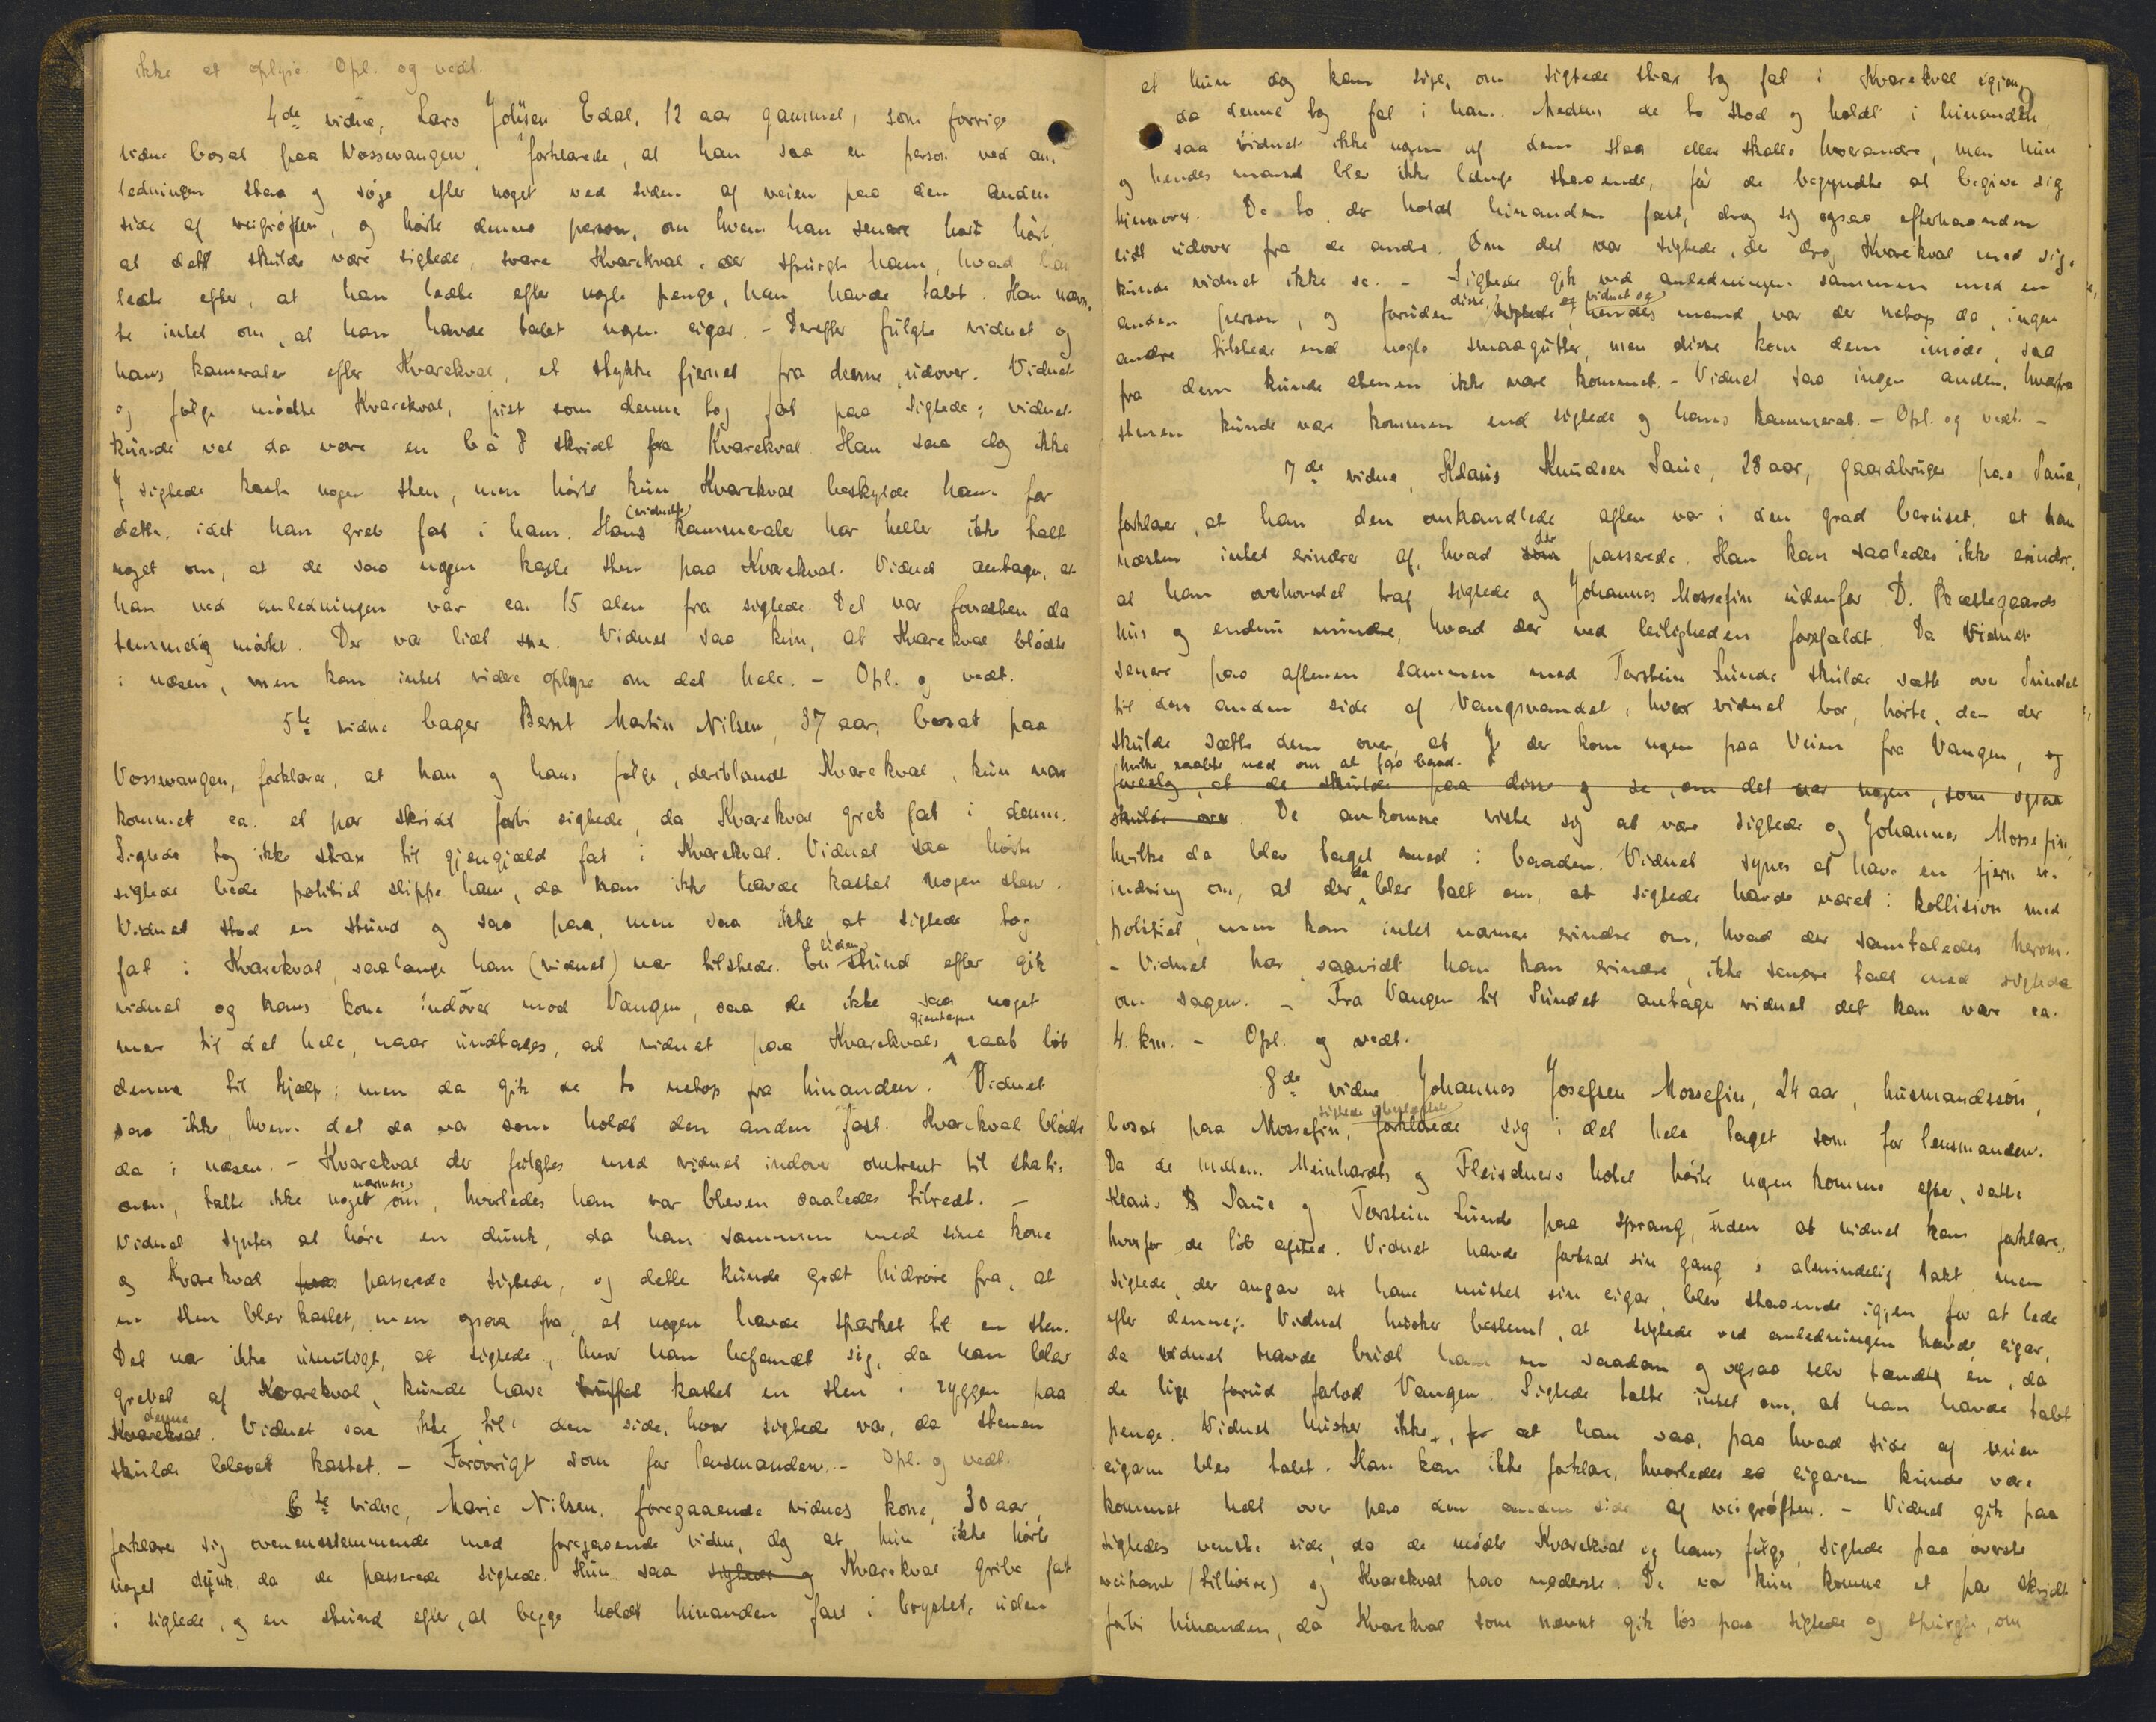 ikke at oplyse. Opl. og vedt.
4de vidne, Lars Johnsen Edal, 12 aar gammel, som forrige
vidne bosat paa Vossevangen, forklarede, at han saa en person ved an-
ledningen staa og søge efter noget ved siden af veien paa den anden
side af veigrøften, og hørte denne person, om hvem han senere har hørt,
at det skulde være sigtede, svare Kvarekval, der spurgte ham, hvad han
ledte efter, at han ledte efter nogle penge, han havde tabt. Han nævn-
te intet om, at han havde tabet nogen cigar. - Derefter fulgte vidnet og
hans kamerater efter Kvarekval, et stykke fjernet fra denne, udover. Vidnet
og følge mødte Kvarekval, just som denne tog fat paa Sigtede; vidnet
kunde vel da være en 6 à 8 skridt fra Kvarekval. Han saa dog ikke
sigtede kaste nogen sten, men hørte kun Kvarekval beskylde ham for
dette, idet han greb fat i ham. Hans (vidnets) kammerater har heller ikke talt
noget om, at de saa nogen kaste sten paa Kvarekval. Vidnet antager, at
han ved anledningen var ca. 15 alen fra sigtede. Det var forresten da
temmelig mørkt. Der var lidt sne. Vidnet saa kun, at Kvarekval blødte
i næsen, men kan intet videre oplyse om det hele. - Opl. og vedt.
5te vidne bager Bernt Martin Nilsen, 37 aar, bosat paa
Vossevangen, forklarer, at han og hans følge, deriblandt Kvarekval, kun var
kommet ca. et par skridt forbi sigtede, da Kvarekval greb fat i denne.
Sigtede tog ikke strax til gjengjæld fat i Kvarekval. Vidnet saa hørte
sigtede bede politiet slippe ham, da han ikke havde kastet nogen sten.
Vidnet stod en stund og saa paa, men saa ikke, at sigtede tog
fat i Kvarekval, saalænge han (vidnet) var tilstede. En liden stund efter gik
vidnet og hans kone indover mod Vangen, saa de ikke saa noget
mer til det hele, naar undtages, at vidnet paa Kvarekvals gjentagne raab løb
denne til hjælp; men da gik de to netop fra hinanden. Vidnet
saa ikke, hvem det da var som holdt den anden fast. Kvarekval blødte
da i næsen. - Kvarekval der fulgtes med vidnet indover omtrent til stati-
onen, talte ikke noget nærmere om, hvorledes han var bleven saaledes tilredt. -
Vidnet syntes at høre en dunk, da han sammen med sine kone
og Kvarekval passerede Sigtede, og dette kunde godt hidrøre fra, at
en sten blev kastet, men ogsaa fra, at nogen havde sparket til en sten.
Det var ikke umuligt, at sigtede, hvor han befandt sig, da han blev
grebet af Kvarekval, kunde have truffet kastet en sten i ryggen paa
Kvarekval denne. Vidnet saa ikke til den side, hvor sigtede var, da stenen
skulde blevet kastet. - Forøvrigt som for lensmanden. - Opl. og vedt.
6te vidne, Marie Nilsen, foregaaende vidnes kone, 30 aar,
forklarer sig overensstemmende med foregaaende vidne, dog at hun ikke hørte
noget dunk, da de passerede sigtede. Hun saa sigtede og Kvarekval gribe fat
i sigtede, og en stund efter, at begge holdt hinanden fast i brystet, uden
at hun dog kan sige, om sigtede strax tog fat i Kvarekval igjen,
da denne tog fat i ham. Medens de to stod og holdt i hinanden,
saa vidnet ikke nogen af dem slaa eller skalle hverandre, men hun
og hendes mand blev ikke længe staaende, før de begyndte at begive sig
hjemover. De to, der holdt hinanden fast, drog sig ogsaa efterhaanden
lidt udover fra de andre. Om det var sigtede, der drog Kvarekval med sig,
kunde vidnet ikke se. - Sigtede gik ved anledningen sammen med en
anden person, og foruden disse, sigtede og vidnet og hendes mand var der netop da, ingen
andre tilstede end nogle smaagutter, men disse kom dem imøde, saa
fra dem kunde stenen ikke være kommet. - Vidnet saa ingen anden, hvorfra
stenen kunde være kommen end sigtede og hans kammerat. - Opl. og vedt. -
7de vidne, Klaus Knudsen Saue, 28 aar, gaardbruger paa Saue,
forklarer, at han den omhandlede aften var i den grad beruset, at han
næsten intet erindrer af, hvad som der passerede. Han kan saaledes ikke erindre,
at han overhovedet traf sigtede og Johannes Mossefin udenfor D. Præstegaards
hus og endnu mindre, hvad der ved leiligheden forefaldt. Da vidnet
senere paa aftenen sammen med Torstein Lunde skulde sætte over Sundet
til den anden side af Vangsvandet, hvor vidnet bor, hørte, den der
skulde sætte dem over, at der kom nogen paa Veien fra Vangen, og
hvilke raabte ned om at faa baad.
foreslog, at de skulde paa disse og se, om det var nogen, som ogsaa
skulde over. De ankomne viste sig at være sigtede og Johannes Mossefin,
hvilke da blev taget med i baaden. Vidnet synes at have en fjern er-
indring om, at der da blev talt om, at sigtede havde været i kollision med
politiet, men kan intet nærmere erindre om, hvad der samtaledes herom.
- Vidnet har, saavidt han kan erindre, ikke senere talt med sigtede
om sagen. - Fra Vangen til Sundet antager vidnet det kan være ca.
4 km. - Opl. og vedt.
8de vidne Johannes Josefsen Mossefin, 24 aar, husmandssøn,
bosat paa Mossefin, sigtede ubeslægtet forklarede sig i det hele taget som for lensmanden.
Da de mellem Meinhardts og Fleischers hotel hørte nogen komme efter, satte
Klaus Saue og Torstein Lunde paa sprang, uden at vidnet kan forklare,
hvorfor de løb afsted. Vidnet havde fortsat sin gang i almindelig takt men
sigtede, der angav at have mistet sin cigar, blev staaende igjen for at lede
efter denne. Vidnet husker bestemt, at sigtede ved anledningen havde cigar,
da vidnet havde budt ham en saadan og ogsaa selv tændt en, da
de lige forud forlod Vangen. Sigtede talte intet om, at han havde tabt
penge. Vidnet husker ikke, at han saa, paa hvad side af veien
cigaren blev tabet. Han kan ikke forklare, hvorledes cigaren kunde være
kommet helt over paa den anden side af veigrøften. - Vidnet gik paa
sigtedes venstre side, da de mødte Kvarekval og hans følge, sigtede paa øverste
veikant (tilhøire) og Kvarekval paa nederste. De var kun komne et par skridt
forbi hinanden, da Kvarekval som nævnt gik løs paa sigtede og spurgte, om